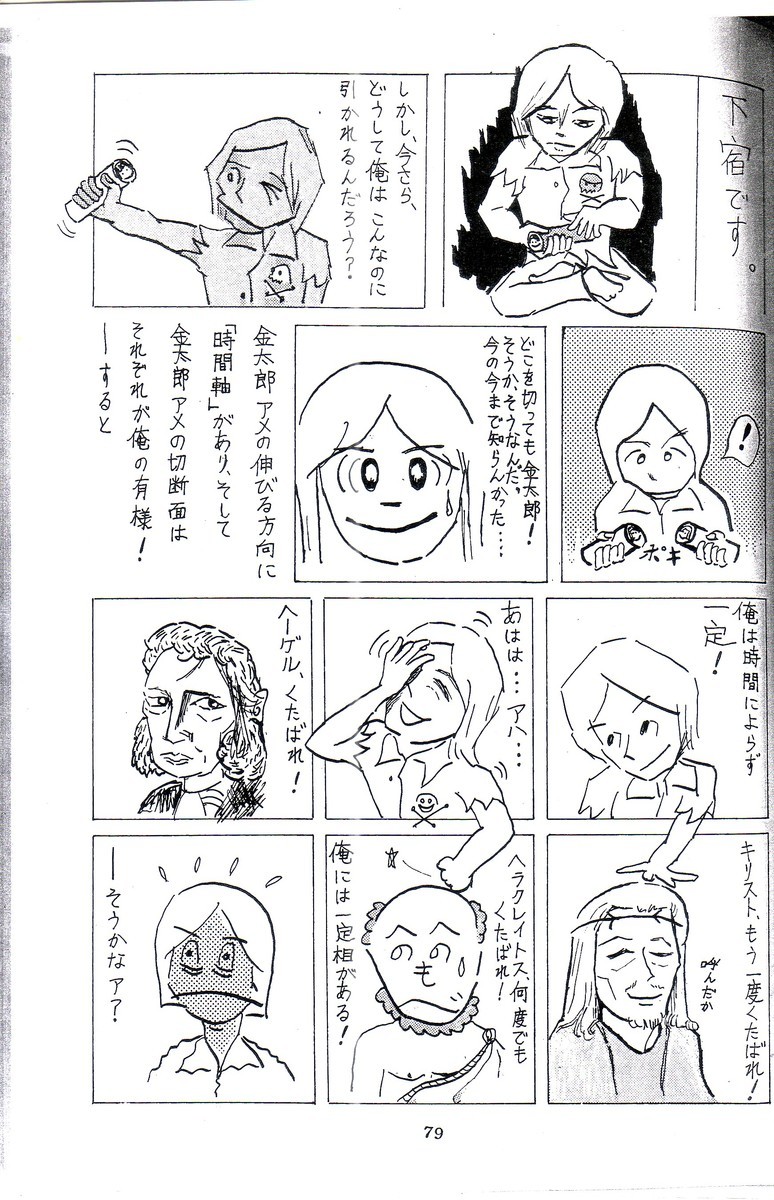 下宿です。
しかし、今さら、
どうして俺は こんなのに
引かれるんだろう?
!
ポキ
どこを切っても金太郎!
そうか、そうなんだ。
今の今まで知らんかった……
金太郎アメの伸びる方向に
「時間軸」があり、そして
金太郎アメの切断面は
それぞれが俺の有様!
ーすると
俺は時間によらず
一定!
あはは…アハ…
ヘーゲル、くたばれ!
キリスト、もう一度くたばれ!
呼んだか
ヘラクレイトス、何度でも
くたばれ!
俺には一定相がある!
へのへのも
ーそうかなァ?
79